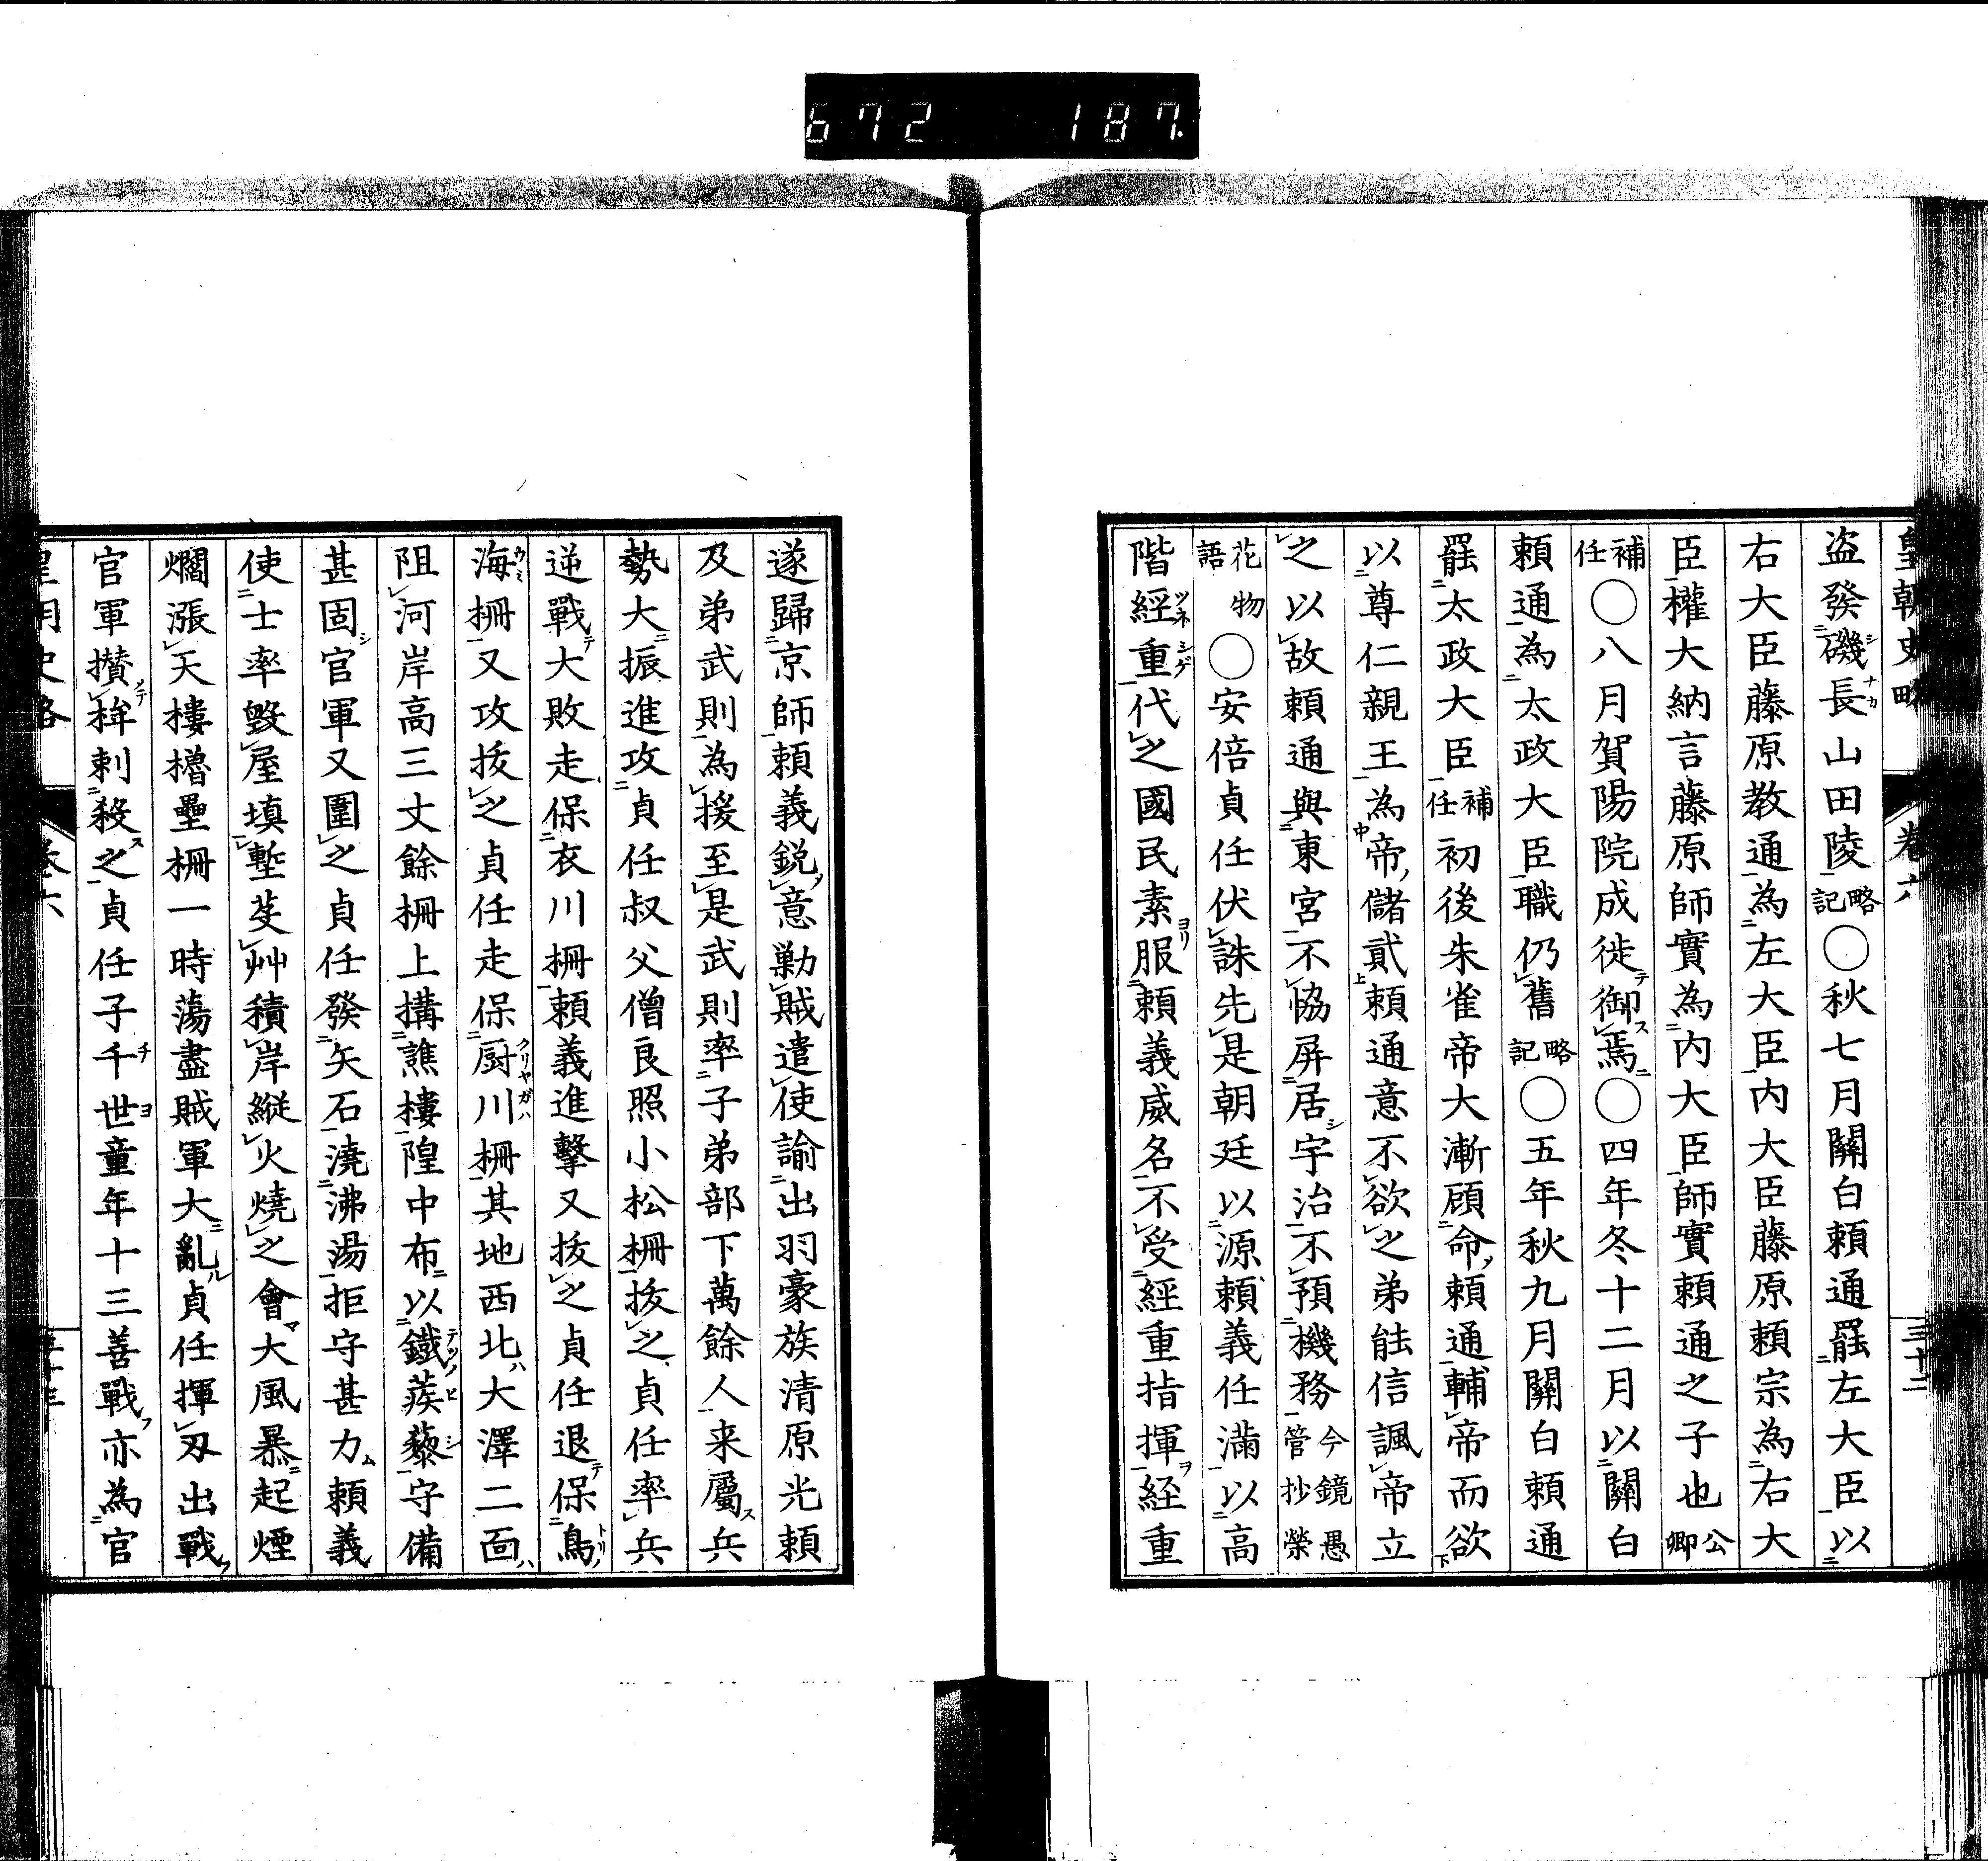 672 187.
皇朝史略 卷六 三十二
盗發磯長山田陵略記〇秋七月關白頼通罷左大臣以
右大臣藤原教通為左大臣内大臣藤原頼宗為右大
臣權大納言藤原師實為内大臣師實頼通之子也公卿
補任〇八月賀陽院成徙御焉〇四年冬十二月以關白
頼通為太政大臣職仍舊略記〇五年秋九月關白頼通
罷太政大臣補任初後朱雀帝大漸顧命頼通輔帝而欲
以尊仁親王為帝儲貳頼通意不欲之弟能信諷帝立
之以故頼通與東宮不恊屏居宇治不預機務今鏡愚管抄榮
花物語〇安倍貞任伏誅先是朝廷以源頼義任滿以高
階經重代之國民素服頼義威名不受經重指揮経重
遂歸京師頼義鋭意勦賊遣使諭出羽豪族清原光頼
及弟武則為援至是武則率子弟部下萬餘人来屬兵
勢大振進攻貞任叔父僧良照小松柵拔之貞任率兵
逆戰大敗走保衣川柵頼義進擊又拔之貞任退保鳥
海柵又攻拔之貞任走保厨川柵其地西北大澤二面
阻河岸高三丈餘柵上搆譙樓隍中布以鐵蒺藜守備
甚固官軍又圍之貞任發矢石澆沸湯拒守甚力頼義
使士率毀屋填塹芟艸積岸縦火燒之會大風暴起煙
爓漲天樓櫓壘柵一時蕩盡賊軍大亂貞任揮刄出戰
官軍攅鉾刺殺之貞任子千世童年十三善戰亦為官